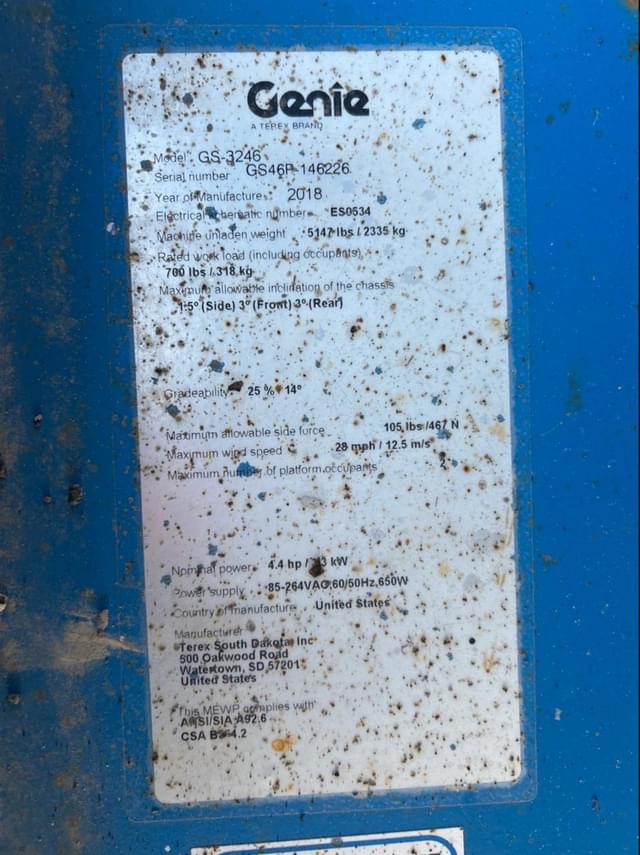 Genie
A TEREX BRAND
Model: GS-3246
Serial number GS46P-146226
Year of Manufacture: 2018
Electrical schematic number ES0534
Machine unladen weight 5147 lbs / 2335 kg
Rated work load (including occupants)
700 lbs / 318 kg
Maximum allowable inclination of the chassis
1.5° (Side) 3° (Front) 3° (Rear)
Gradeability 25 % 14°
Maximum allowable side force 105 lbs /467 N
Maximum wind speed 28 mph / 12.5 m/s
Maximum number of platform occupants 2
Nominal power 4.4 hp / kW
Power supply 85-264VAC,60/50Hz,650W
Country of manufacture United States
Manufacturer
Terex South Dakota, Inc
500 Oakwood Road
Watertown, SD 57201
United States
This MEWP complies with
ANSI/SIA A92.6
CSA